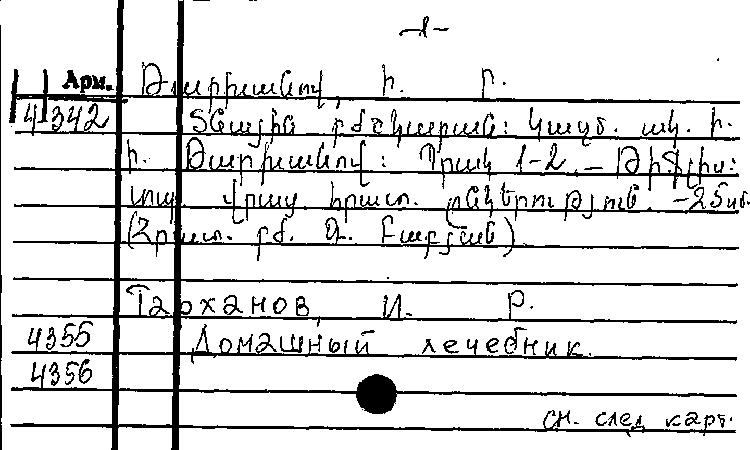 -1-
Арм. Թարխանով, Ի. Ր.
4342 Տնային բժշկարան: Կազմ. ակ. Ի.
Ի. Թարխանով: Պրակ 1-2. – Թիֆլիս:
տպ. Վրաց հրատ. ընկերության. –25սմ.
(Հրատ. բժ. Օ.
Тарханов, И. Р.
4355 Домашный лечебник.
4356
см. след карт.